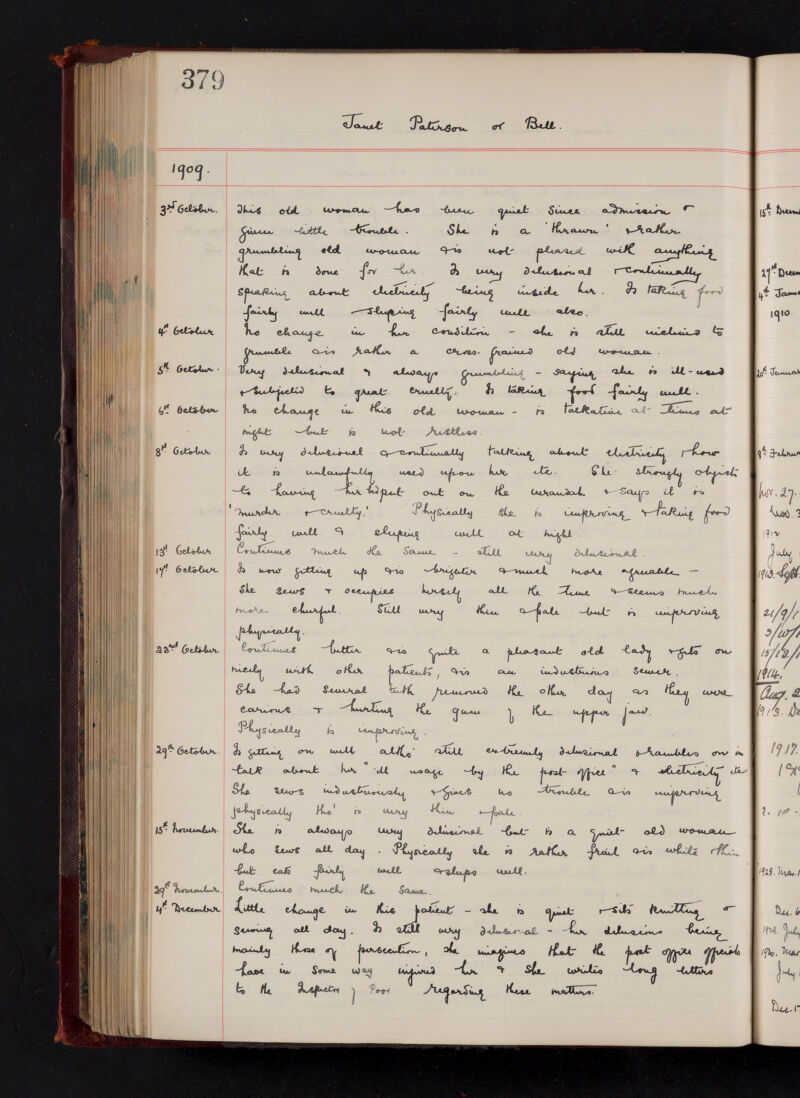 379
Janet Paterson or Bell.
1909.
3rd October. This old woman has been quiet since admission &
given little trouble. She is a 'thrawn' & rather
grumbling old woman & is not pleased with anything
that is done for her. Is very delusional & continually
speaking about electricity being inside her. Is taking food
fairly well & sleeping fairly well also.
4th October No change in her condition - she is still inclined to
grumble & is rather a cross-grained old woman.
5th October. Very delusional & always grumbling - saying she is ill-used
& subjected to great cruelty. Is taking food fairly well.
6th October No change in this old woman - is talkative at times at
night but is not restless.
8th October Is very delusional & continually talking about electricity & how
it is unlawfully used upon her etc. She strongly objects
to having her bed put out on the verandah & says it is
'murder & cruelty.' Physically she is improving & taking food
fairly well & sleeping well at night.
13th October Continues much the same - still very delusional.
17th October Is now getting up & is brighter & much more agreeable -
She sews & occupies herself all the time & seems much
more cheerful. Still very thin & pale but is improving
physically.
23rd October. Continues better & is quite a pleasant old lady & gets on
nicely with other patients, & is an industrious sewer.
She had several teeth removed the other day as they were
carious & hurting the gum of the upper jaw.
Physically is improving.
29th October. Is getting on well altho' still extremely delusional & rambles on in
talk about her "ill usage by the post office" & electricity etc
She sews industriously & gives no trouble & is improving
physically tho' is very thin & pale.
15th November. She is always very delusional but is a quiet old woman
who sews all day. Physically she is rather frail & is white & thin
but eats fairly well & sleeps well.
29th November. Continues much the same.
4th December Little change in this patient - she is quiet & sits knitting &
sewing all day. Is still very delusional - her delusions being
mainly those of persecution, she imagines that the post office officials
have in some way injured her & she writes long letters
to the Inspector of Poor regarding these matters.
15th
27th
4th
1910
Nov. 27.
1912
July
1913. Sept.
1914.
Aug. 2
1917.
July